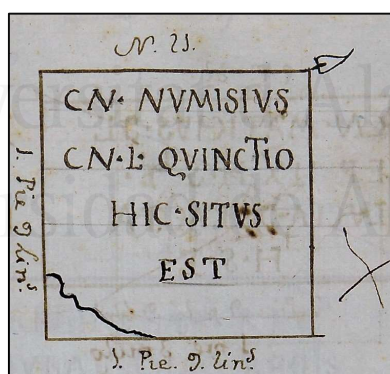 N. 21.
CN· NVMISIVS
CN·L· QVINCTIO
HIC·SITVS
EST
1. Pie 9 lin.s
1. Pie. 9. lin.s